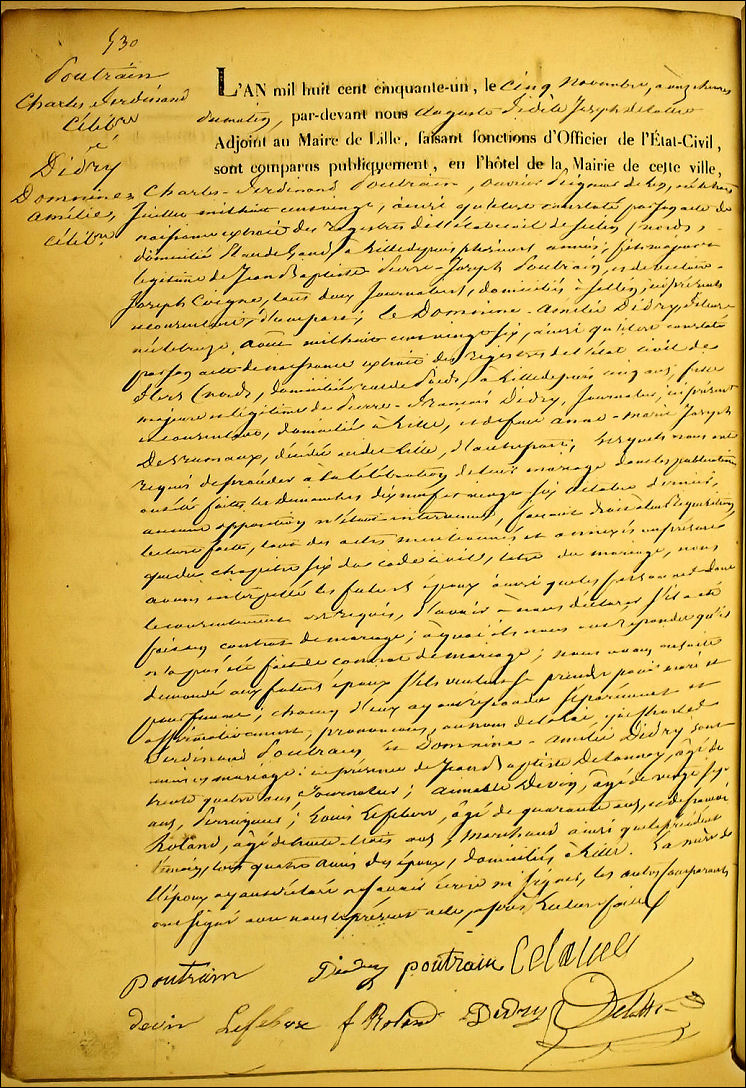 530
Poutrain
Charles Ferdinand
Célibre
&
Didry
Domninee
Amélie,
Célibre
L'AN mil huit cent cinquante-un, le cinq novembre, a onze heures
du matin, par-devant nous Auguste Fidèle Joseph Delattre
Adjoint au Maire de Lille, faisant fonctions d'Officier de l'État-Civil,
sont comparus publiquement, en l'hôtel de la Mairie de cette ville,
Charles-Ferdinand Poutrain, ouvrier peigneur de lin, né le
Juillet mil huit cent vingt, ainsi qu'il est constaté par son acte de
naissance extrait des registres de l'état civil de (nord),
domicilié à Lille depuis plusieurs années; fils majeur et
légitime de Jean Baptiste Pierre-Joseph Poutrain, et de
Joseph Coigne, tous deux Journaliers, domiciliés à ici présents
et consentant, d'une part; Et Domninee-Amélie Didry,
née le août mil huit cent vingt six, ainsi qu'il est constaté
par son acte de naissance extrait des registres de l'état civil de
Flers (nord), domiciliée rue de à Lille depuis cinq ans, fille
majeure et légitime de Pierre-François Didry, Journalier, ici présent
et consentant, domicilié à Lille, et de feue Anne-Marie Joseph
Desrumaux, décédée audit Lille, d'autre part; Lesquels nous ont
requis de procéder à la célébration de leur mariage dont les publications
ont été faites les dimanches dix neuf et vingt-six octobre dernier,
aucune opposition n'étant intervenue, faisant droit à leur réquisition,
lecture faite, tant des actes mentionnés et annexés au présent
que du chapitre six du code civil, titre du mariage, nous
avons interpellé les futurs époux ainsi que les personnes dont
le consentement est requis, d'avoir à nous déclarer s'il a été
fait un contrat de mariage; à quoi ils nous ont répondu qu'il
n'a pas été fait de contrat de mariage; nous avons ensuite
demandé aux futurs époux s'ils veulent se prendre pour mari et
pour femme; chacun d'eux ayant répondu séparément et
affirmativement, prononçons, au nom de la loi, que Charles
Ferdinand Poutrain et Domninee-Amélie Didry sont
unis en mariage: en présence de Jean Baptiste Delannoy, âgé de
trente quatre ans Journalier; Aimable Devin, âgé de vingt six
ans, Perruquier; Louis Lefebvre, âgé de quarante ans, et de
Roland, âgé de trente-trois ans, marchand ainsi que le précédent
témoin, tous quatre amis des époux, domiciliés à Lille. La mère de
l'époux ayant déclaré ne savoir écrire ni signer, les autres comparants
ont signé avec nous le présent acte, après lecture faite
poutrain Didry poutrain
devin Lefebvre f Roland Didry Delattre